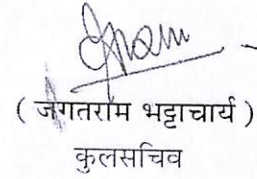 ( जगतराम भट्टाचार्य )
कुलसचिव